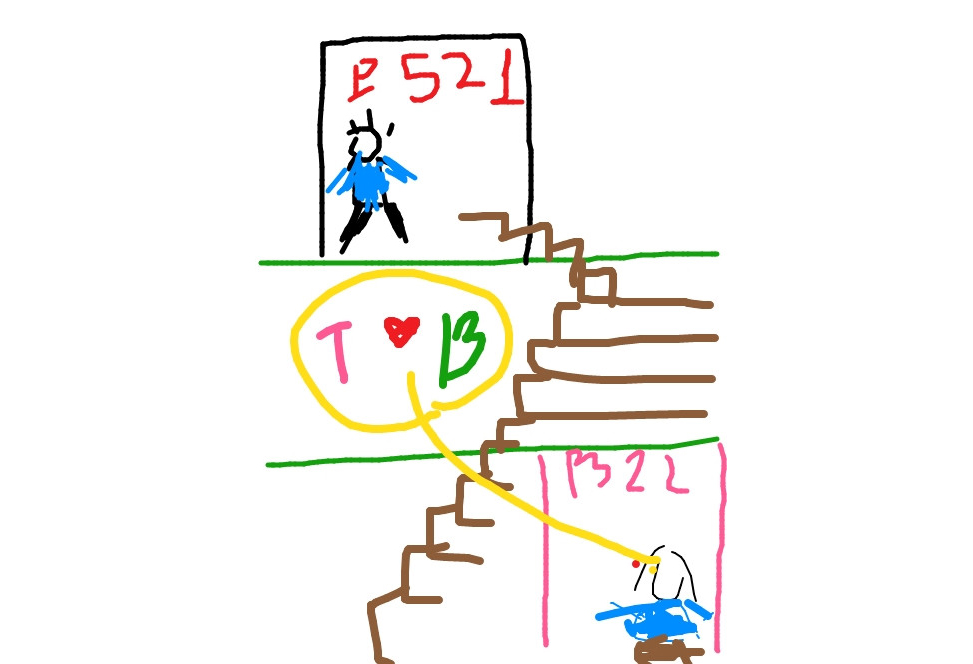 P 521
T ♥ B
B22